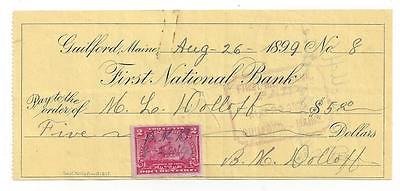 Guilford, Maine, Aug-26-1899 No. 8
First National Bank
Pay to the
order of M. L. Dolloff $5.00
Five Dollars
2 2
DOCUMENTARY
B. M. Dolloff